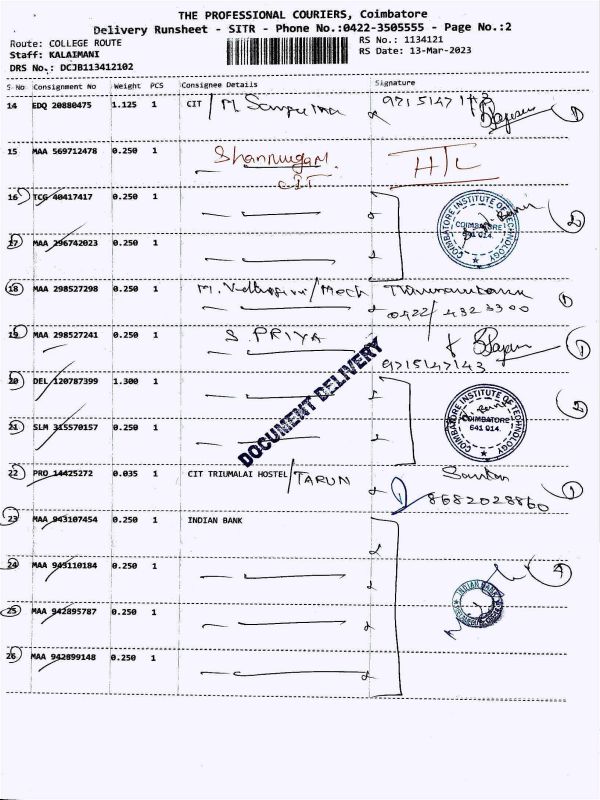 THE PROFESSIONAL COURIERS, Coimbatore
Delivery Runsheet - SITR - Phone No.:0422-3505555 - Page No.:2
Route: COLLEGE ROUTE
RS No.: 1134121
Staff: KALAIMANI
RS Date: 13-Mar-2023
DRS No.: DCJB113412102
S No Consignment No Weight PCS Consignee Details Signature
14 EDQ 20880475 1.125 1 CIT / M 9715147143 1
15 MAA 569712478 0.250 1 Shanmugam. HTL
CIT
16 TCG 40417417 0.250 1 2
COIMBATORE INSTITUTE OF TECHNOLOGY
COIMBATORE
641 014.
17 MAA 296742023 0.250 1
18 MAA 298527298 0.250 1 M. / Mech 1
0422 / 432 3300
19 MAA 298527241 0.250 1 S. PRIYA 1
9715147143
DOCUMENT DELIVERY
20 DEL 120787399 1.300 1 2
COIMBATORE INSTITUTE OF TECHNOLOGY
COIMBATORE
641 014.
21 SLM 315570157 0.250 1
22 PRO 14425272 0.035 1 CIT TRIUMALAI HOSTEL / TARUN 1
8682028860
23 MAA 943107454 0.250 1 INDIAN BANK
24 MAA 943110184 0.250 1 4
INDIAN BANK
25 MAA 942895787 0.250 1
26 MAA 942899148 0.250 1